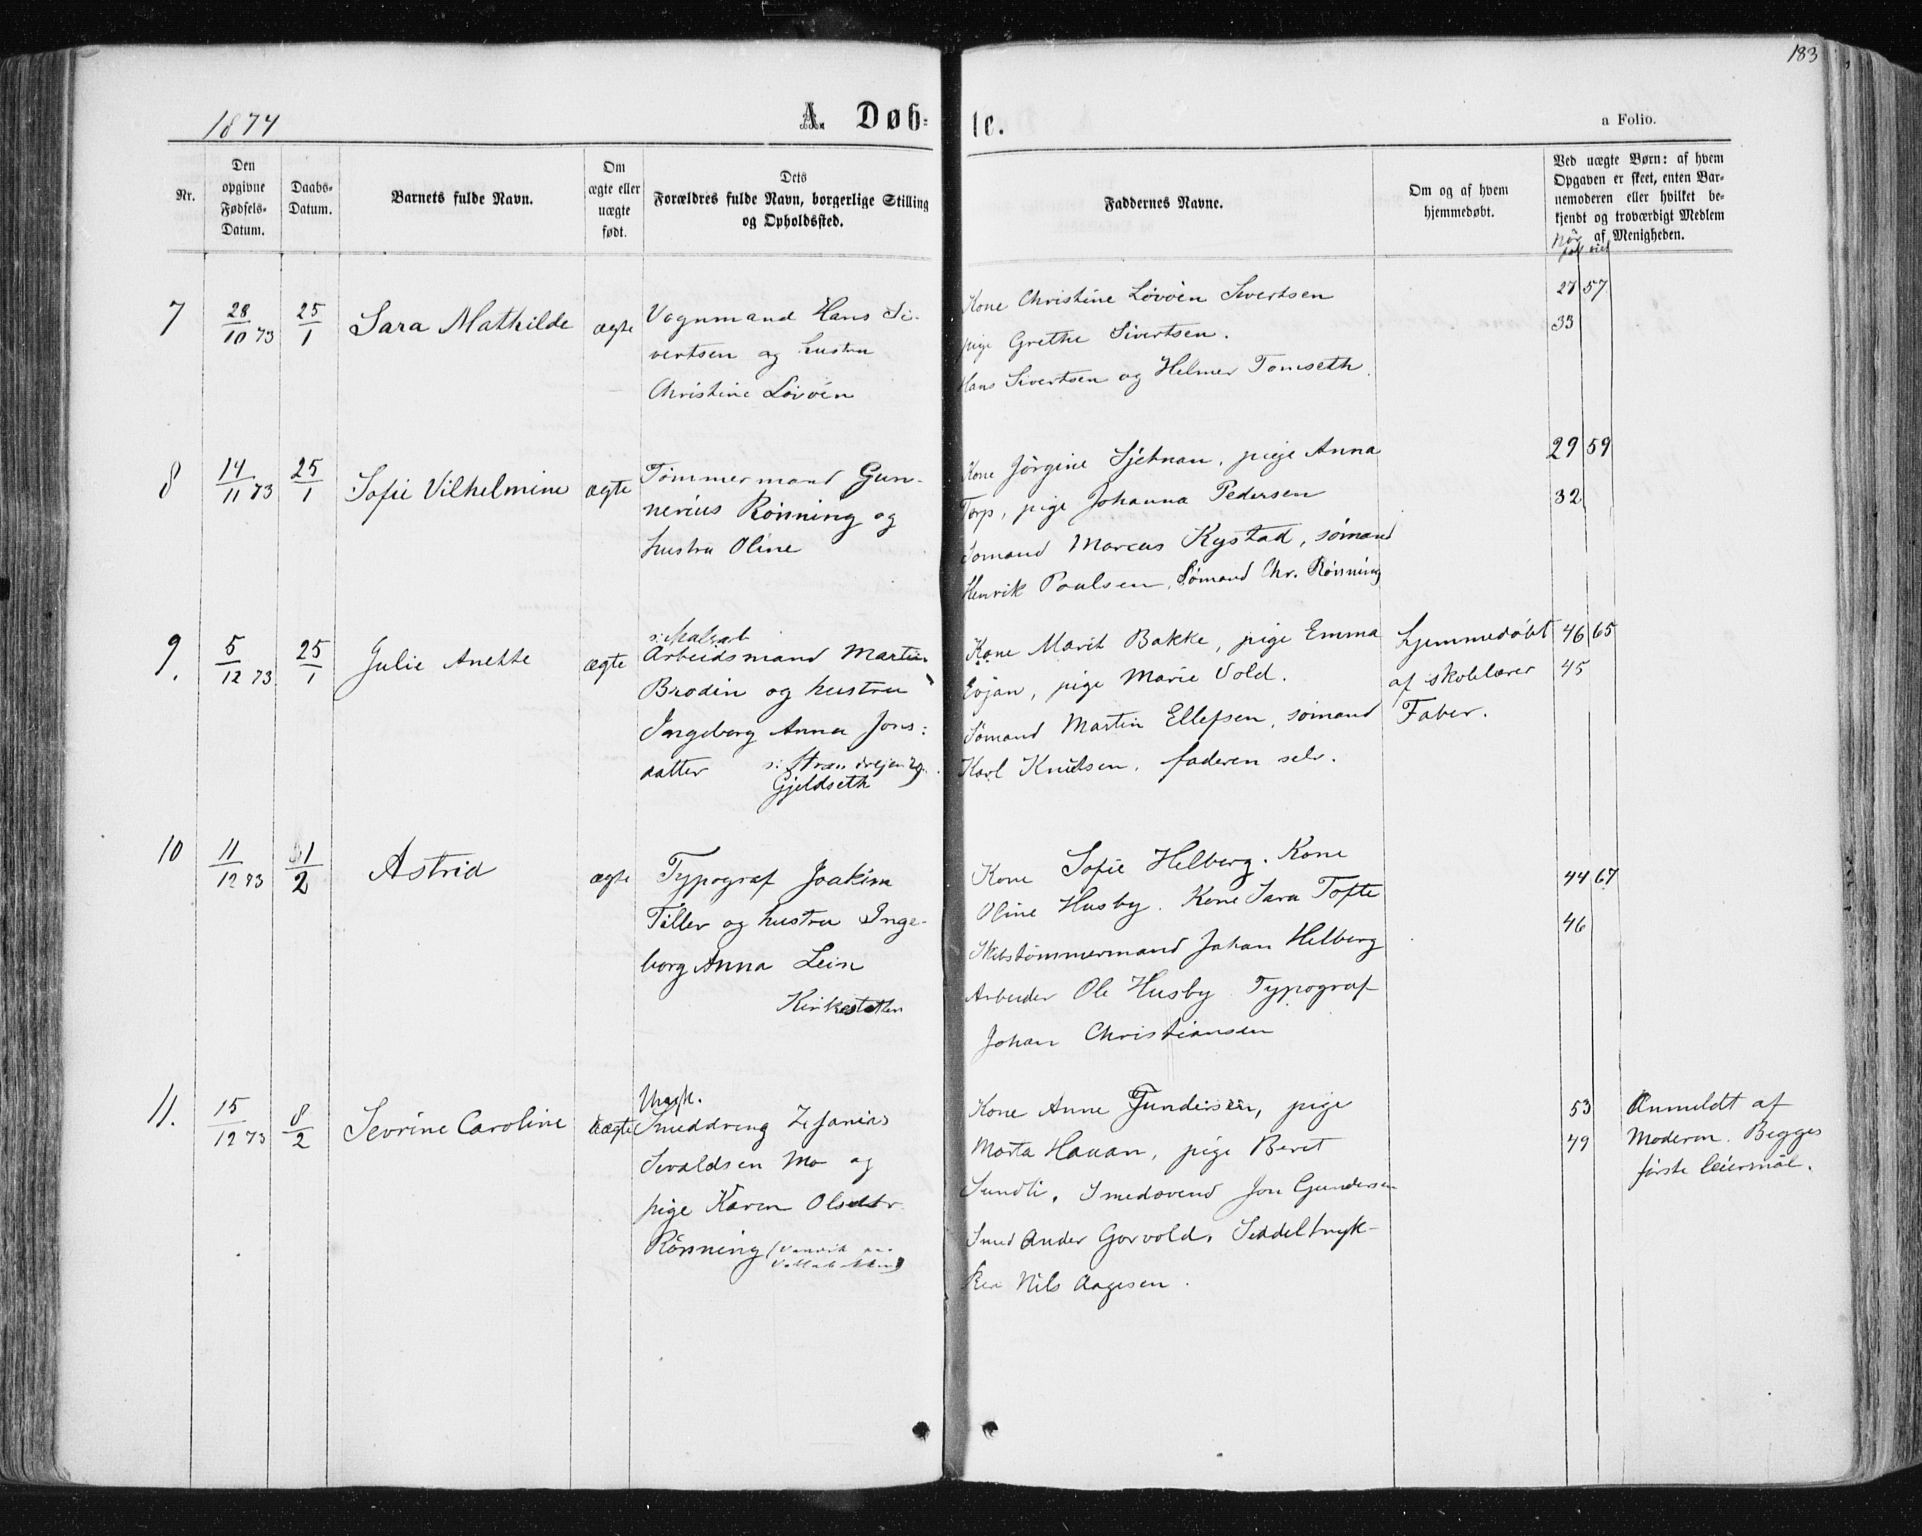 183
1874
A. Døb-
te.
a Folio.
Nr.
Den opgivne Fødsels-Datum.
Daabs-Datum.
Barnets fulde Navn.
Om ægte eller uægte født.
Dets Forældres fulde Navn, borgerlige Stilling og Opholdssted.
Faddernes Navne.
Om og af hvem hjemmedøbt.
Ved uægte Børn: af hvem Opgaven er skeet, enten Barnemoderen eller hvilket bekjendt og troværdigt Medlem af Menigheden.
Når
7
28/10 73
25/1
Sara Mathilde
ægte
Vognmand Hans Si-
vertsen og hustru
Christine Lövöen
Kone Christine Lövöen Sivertsen
pige Grethe Sivertsen.
Hans Sivertsen og Helmer Tomseth.
27 57
33
8
14/11 73
25/1
Sofie Vilhelmine
ægte
Tömmermand Gun-
nerius Rönning og
hustru Oline
Kone Jörgine Sjetnan, pige Anna
Torp, pige Johanna Pedersen
Sömand Marcus Rystad, sömand
Henrik Poulsen, Sömand Chr. Rönning
29 59
32
9.
5/12 73
25/1
Julie Anette
ægte
Arbeidsmand Martin
Brodin og hustru
Ingeborg Anna Jons:
datter
Gjeldseth
Kone Marit Bakke, pige Emma
Evjan, pige Marie Vold.
Sömand Martin Ellefsen, sömand
Karl Knudsen, faderen selv.
hjemmedöbt
af skolelærer
Faber.
46 65
45
10
11/12 73
1/2
Astrid
ægte
Typograf Joakim
Tiller og hustru Inge-
borg Anna Lein
Kirkestetten
Kone Sofie Helberg. Kone
Oline Husby. Kone Sara Tofte
Skibstömmermand Johan Helberg
Arbeider Ole Husby Typograf
Johan Christiansen
44 67
46
11.
15/12 73
8/2
Sevrine Caroline
uægte
Ungk.
Smeddreng Zefanias
Sivaldsen Mo og
pige Karen Olsdtr
Rönning
Kone Anne Gundersen, pige
Marta Hauan, pige Beret
Sundli. Smedsvend Jon Gundersen
Smed Ander Gorvold. Seddeltryk-
ker Nils Aagesen.
53
49
Anmeldt af
Moderen. Begges
förste leiersmål.